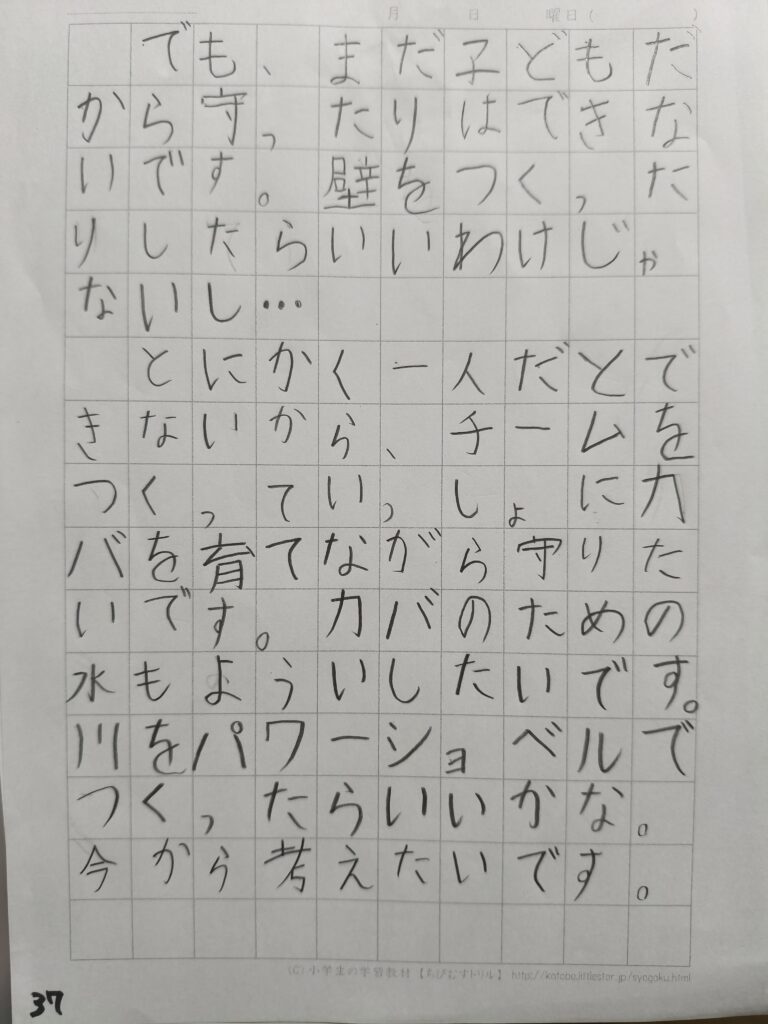 月 日 曜日( )
でも、まだ子どもだ
から守ったりはできな
いです。壁をつくった
りしたらいいわけじゃ
ないし…
とにかく一人だとで
きないから、チームを
つくっていっしょにカ
バを育てながら守りた
いです。カバのための
水もよういしたいです。
川をパワーショベルで
つくったらいいかな。
今から考えたいです。
(C)小学生の学習教材【ちびむすドリル】 http://katebo.littlestar.jp/syogaku.html
37